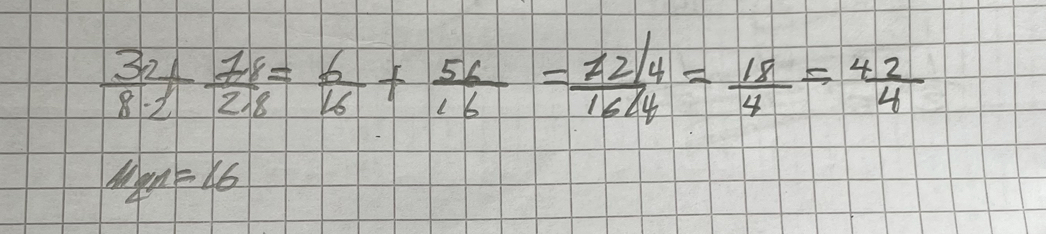 3·2/8·2 + 7·8/2·8 = 6/16 + 56/16 = 72/4/16/4 = 18/4 = 4 2/4
Mgn = 16